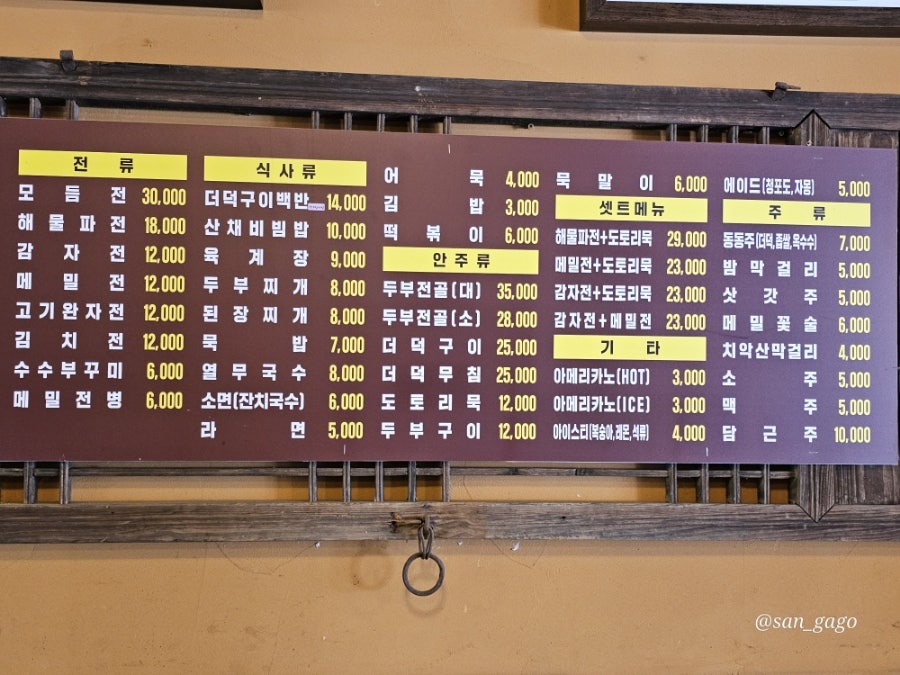 전 류
모듬전 30,000
해물파전 18,000
감자전 12,000
메밀전 12,000
고기완자전 12,000
김치전 12,000
수수부꾸미 6,000
메밀전병 6,000
식사류
더덕구이백반 14,000
산채비빔밥 10,000
육계장 9,000
두부찌개 8,000
된장찌개 8,000
묵밥 7,000
열무국수 8,000
소면(잔치국수) 6,000
라면 5,000
어묵 4,000
김밥 3,000
떡볶이 6,000
안주류
두부전골(대) 35,000
두부전골(소) 28,000
더덕구이 25,000
더덕무침 25,000
도토리묵 12,000
두부구이 12,000
묵말이 6,000
셋트메뉴
해물파전+도토리묵 29,000
메밀전+도토리묵 23,000
감자전+도토리묵 23,000
감자전+메밀전 23,000
기 타
아메리카노(HOT) 3,000
아메리카노(ICE) 3,000
아이스티(복숭아, 레몬, 석류) 4,000
에이드(청포도, 자몽) 5,000
주 류
동동주(더덕, 좁쌀, 옥수수) 7,000
밤막걸리 5,000
삿갓주 5,000
메밀꽃술 6,000
치악산막걸리 4,000
소주 5,000
맥주 5,000
담근주 10,000
@san_gago